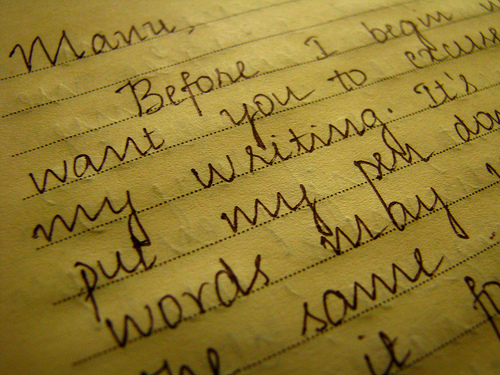 Manu,
Before I begin
want you to excuse
my writing. It's
put my pen
words may
same
it